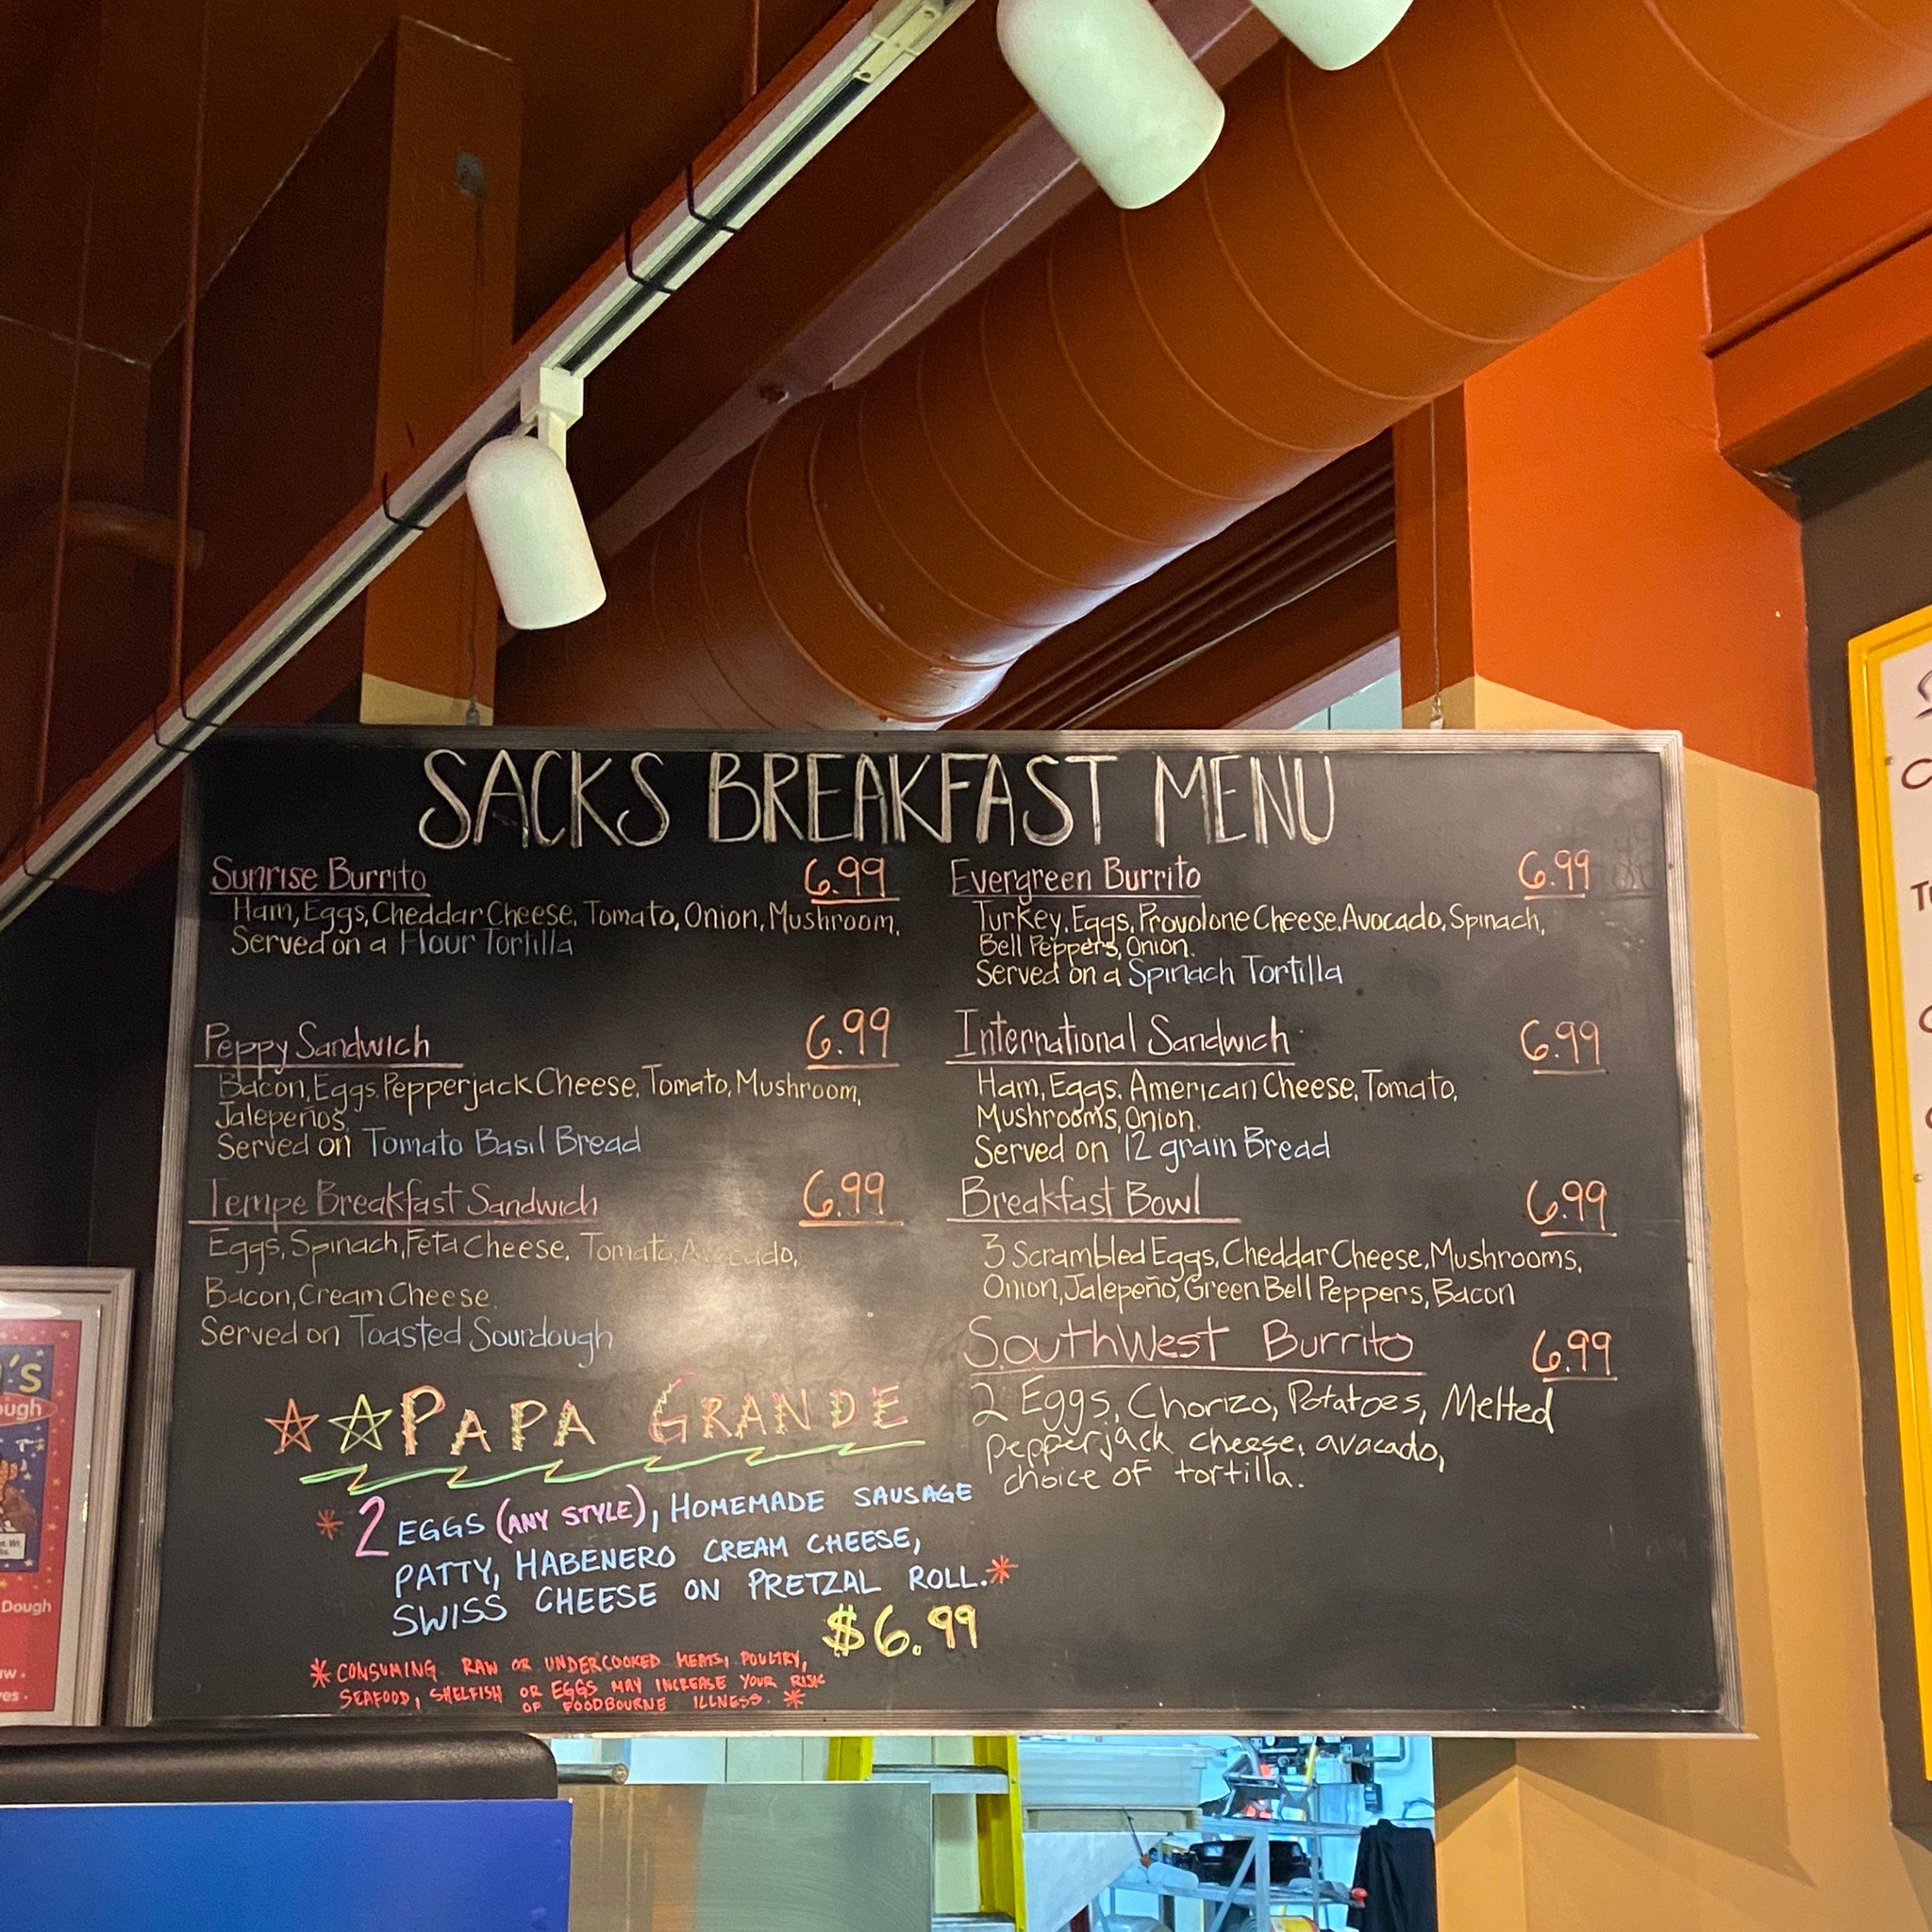 SACKS BREAKFAST MENU
Sunrise Burrito 6.99
Ham, Eggs, Cheddar Cheese, Tomato, Onion, Mushroom,
Served on a Flour Tortilla
Peppy Sandwich 6.99
Bacon, Eggs, Pepperjack Cheese, Tomato, Mushroom,
Jalepeños,
Served on Tomato Basil Bread
Tempe Breakfast Sandwich 6.99
Eggs, Spinach, Feta Cheese, Tomato, Avocado,
Bacon, Cream Cheese,
Served on Toasted Sourdough
PAPA GRANDE
* 2 EGGS (ANY STYLE), HOMEMADE SAUSAGE
PATTY, HABENERO CREAM CHEESE,
SWISS CHEESE ON PRETZAL ROLL.*
$6.99
* CONSUMING RAW OR UNDERCOOKED MEATS, POULTRY,
SEAFOOD, SHELFISH OR EGGS MAY INCREASE YOUR RISK
OF FOODBOURNE ILLNESS. *
Evergreen Burrito 6.99
Turkey, Eggs, Provolone Cheese, Avocado, Spinach,
Bell Peppers, Onion.
Served on a Spinach Tortilla
International Sandwich 6.99
Ham, Eggs, American Cheese, Tomato,
Mushrooms, Onion.
Served on 12 grain Bread
Breakfast Bowl 6.99
3 Scrambled Eggs, Cheddar Cheese, Mushrooms,
Onion, Jalepeño, Green Bell Peppers, Bacon
SouthWest Burrito 6.99
2 Eggs, Chorizo, Potatoes, Melted
pepperjack cheese, avacado,
choice of tortilla.
Dough